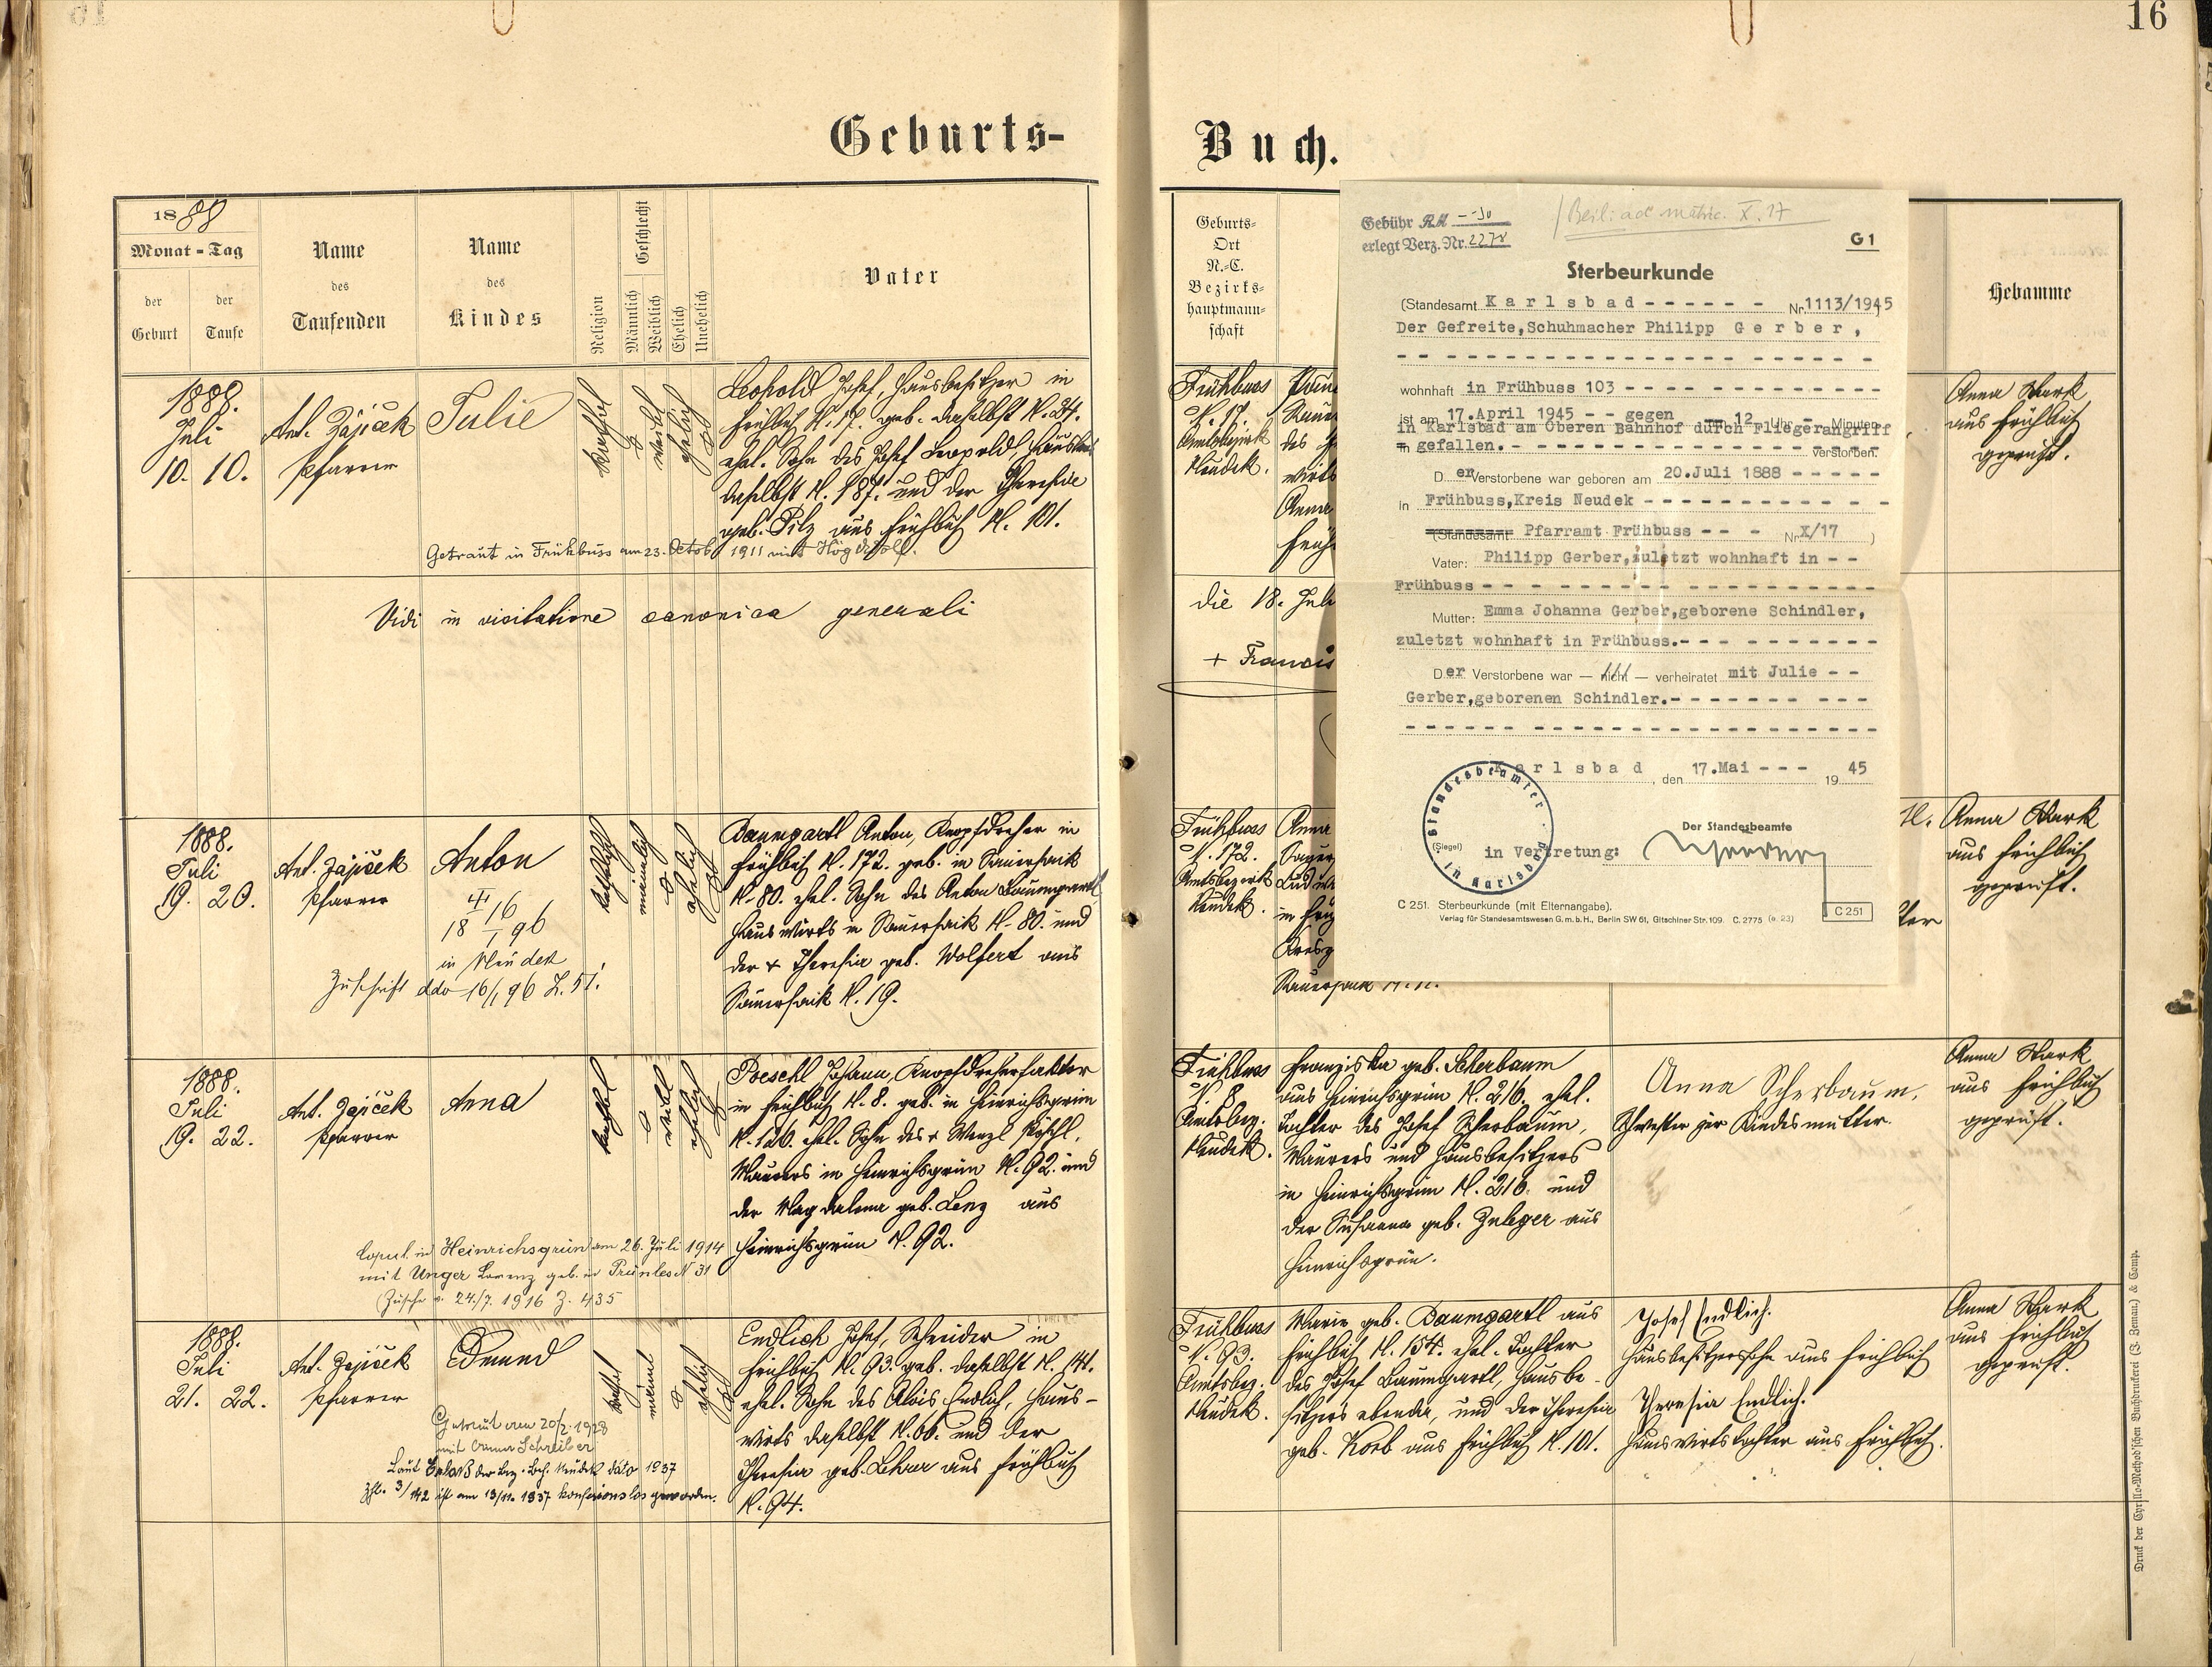 16
Geburts-
Buch.
1888
Monat - Tag
der Geburt
der Taufe
Name des Taufenden
Name des Kindes
Religion
Geschlecht
Männlich
Weiblich
Ehelich
Unehelich
Vater
1888.
Juli
10. 10.
Ant. Zájiček
Pfarrer
Julie
Leopold Josef, Hausbesitzer in
Frühbuß N. 17. geb. daselbst N. 24.
ehel. Sohn des Josef Leopold,
daselbst N. 187. und der Theresia
geb. Pilz aus Frühbuß N. 101.
Getraut in Frühbuss am 23. Octob 1911 mit
Vidi in visitatione canonica generali
1888.
Juli
19. 20.
Ant. Zájiček
Pfarrer
Anton
18 16/I 96
in Neudek
Zuschrift ddo 16/1 96 Z. 51.
Baumgartl Anton, Knopfdreher in
Frühbuß N. 172. geb. in Sauersack
N. 80. ehel. Sohn des Anton Baumgartl
Hauswirts in Sauersack N. 80. und
der + Theresia geb. Wolfert aus
Sauersack N. 19.
1888.
Juli
19. 22.
Ant. Zajiček
Pfarrer
Anna
Poeschl Johann, Knopfdreherfaktor
in Frühbuß N. 8. geb. in Heinrichsgrün
N. 126. ehel. Sohn des + Wenzl Pöschl,
Maurers in Heinrichsgrün N. 92. und
der Magdalena geb. Lenz aus
Heinrichsgrün N. 92.
Copul. in Heinrichsgrün am 26. Juli 1914
mit Unger Lorenz geb. in Prünles N 31
(Zuschr v. 24./7. 1916 Z. 435
1888.
Juli
21. 22.
Ant. Zajiček
Pfarrer
Edmund
Endlich Josef, Schneider in
Frühbuß N. 93. geb. daselbst N. 141.
ehel. Sohn des Alois Endlich, Haus-
wirts daselbst N. 66. und der
Theresia geb. Lehrer aus Frühbuß
N. 94.
Getraut am 20/2. 1928
mit Anna Schreiber
Laut Erlaß der Bez. Beh. Neudek dato 1937
Zhl. 3/142 ist am 13/11. 1937 konfessionslos geworden.
Geburts-
Ort
N.-C.
Bezirks-
hauptmann-
schaft
Hebamme
Frühbuss
N. 17.
Amtsbezirk
Neudek.
Anna Stark
aus Frühbuß
geprüft.
die 18. Juli
+ Francis
Gebühr RM
erlegt Verz. Nr. 2278
Beil: ad matric. X. 17
G 1
Sterbeurkunde
(Standesamt Karlsbad - - - - - - Nr. 1113/1945
Der Gefreite, Schuhmacher Philipp Gerber,
wohnhaft in Frühbuss 103
ist am 17.April 1945 - - gegen - - 12 Uhr - Minuten
in Karlsbad am Oberen Bahnhof durch Fliegerangriff
in gefallen. verstorben.
Der Verstorbene war geboren am 20.Juli 1888
In Frühbuss, Kreis Neudek
(Standesamt Pfarramt Frühbuss - - - Nr. X/17 )
Vater: Philipp Gerber, zuletzt wohnhaft in - -
Frühbuss
Mutter: Emma Johanna Gerber, geborene Schindler,
zuletzt wohnhaft in Frühbuss.
Der Verstorbene war — nicht — verheiratet mit Julie - -
Gerber, geborenen Schindler.
Karlsbad, den 17.Mai - - - 1945
Standesbeamter in Karlsbad
(Siegel)
Der Standesbeamte
in Vertretung:
C 251. Sterbeurkunde (mit Elternangabe).
Verlag für Standesamtswesen G.m.b.H., Berlin SW 61, Gitschiner Str. 109. C. 2775 (e. 23)
C 251
Frühbuss
N. 172.
Amtsbezirk
Neudek.
Anna
Anna Stark
aus Frühbuß
geprüft.
Frühbuss
N. 8
Amtsbez.
Neudek.
Franziska geb. Scherbaum
aus Heinrichsgrün N. 216. ehel.
Tochter des Josef Scherbaum,
Maurers und Hausbesitzers
in Heinrichsgrün N. 216. und
der Susanna geb. Zuleger aus
Heinrichsgrün.
Anna Scherbaum,
Schwester zur Kindesmutter.
Anna Stark
aus Frühbuß
geprüft.
Frühbuss
N. 93.
Amtsbez.
Neudek.
Marie geb. Baumgartl aus
Frühbuß N. 154. ehel. Tochter
des Josef Baumgartl, Hausbe-
sitzers ebenda, und der Theresia
geb. Korb aus Frühbuß N. 101.
Josef Endlich.
Hausbesitzerssohn aus Frühbuß
Theresia Endlich.
Hauswirtstochter aus Frühbuß.
Anna Stark
aus Frühbuß
geprüft.
Druck der Cyrillo-Method'schen Buchdruckerei (J. Zeman) & Comp.